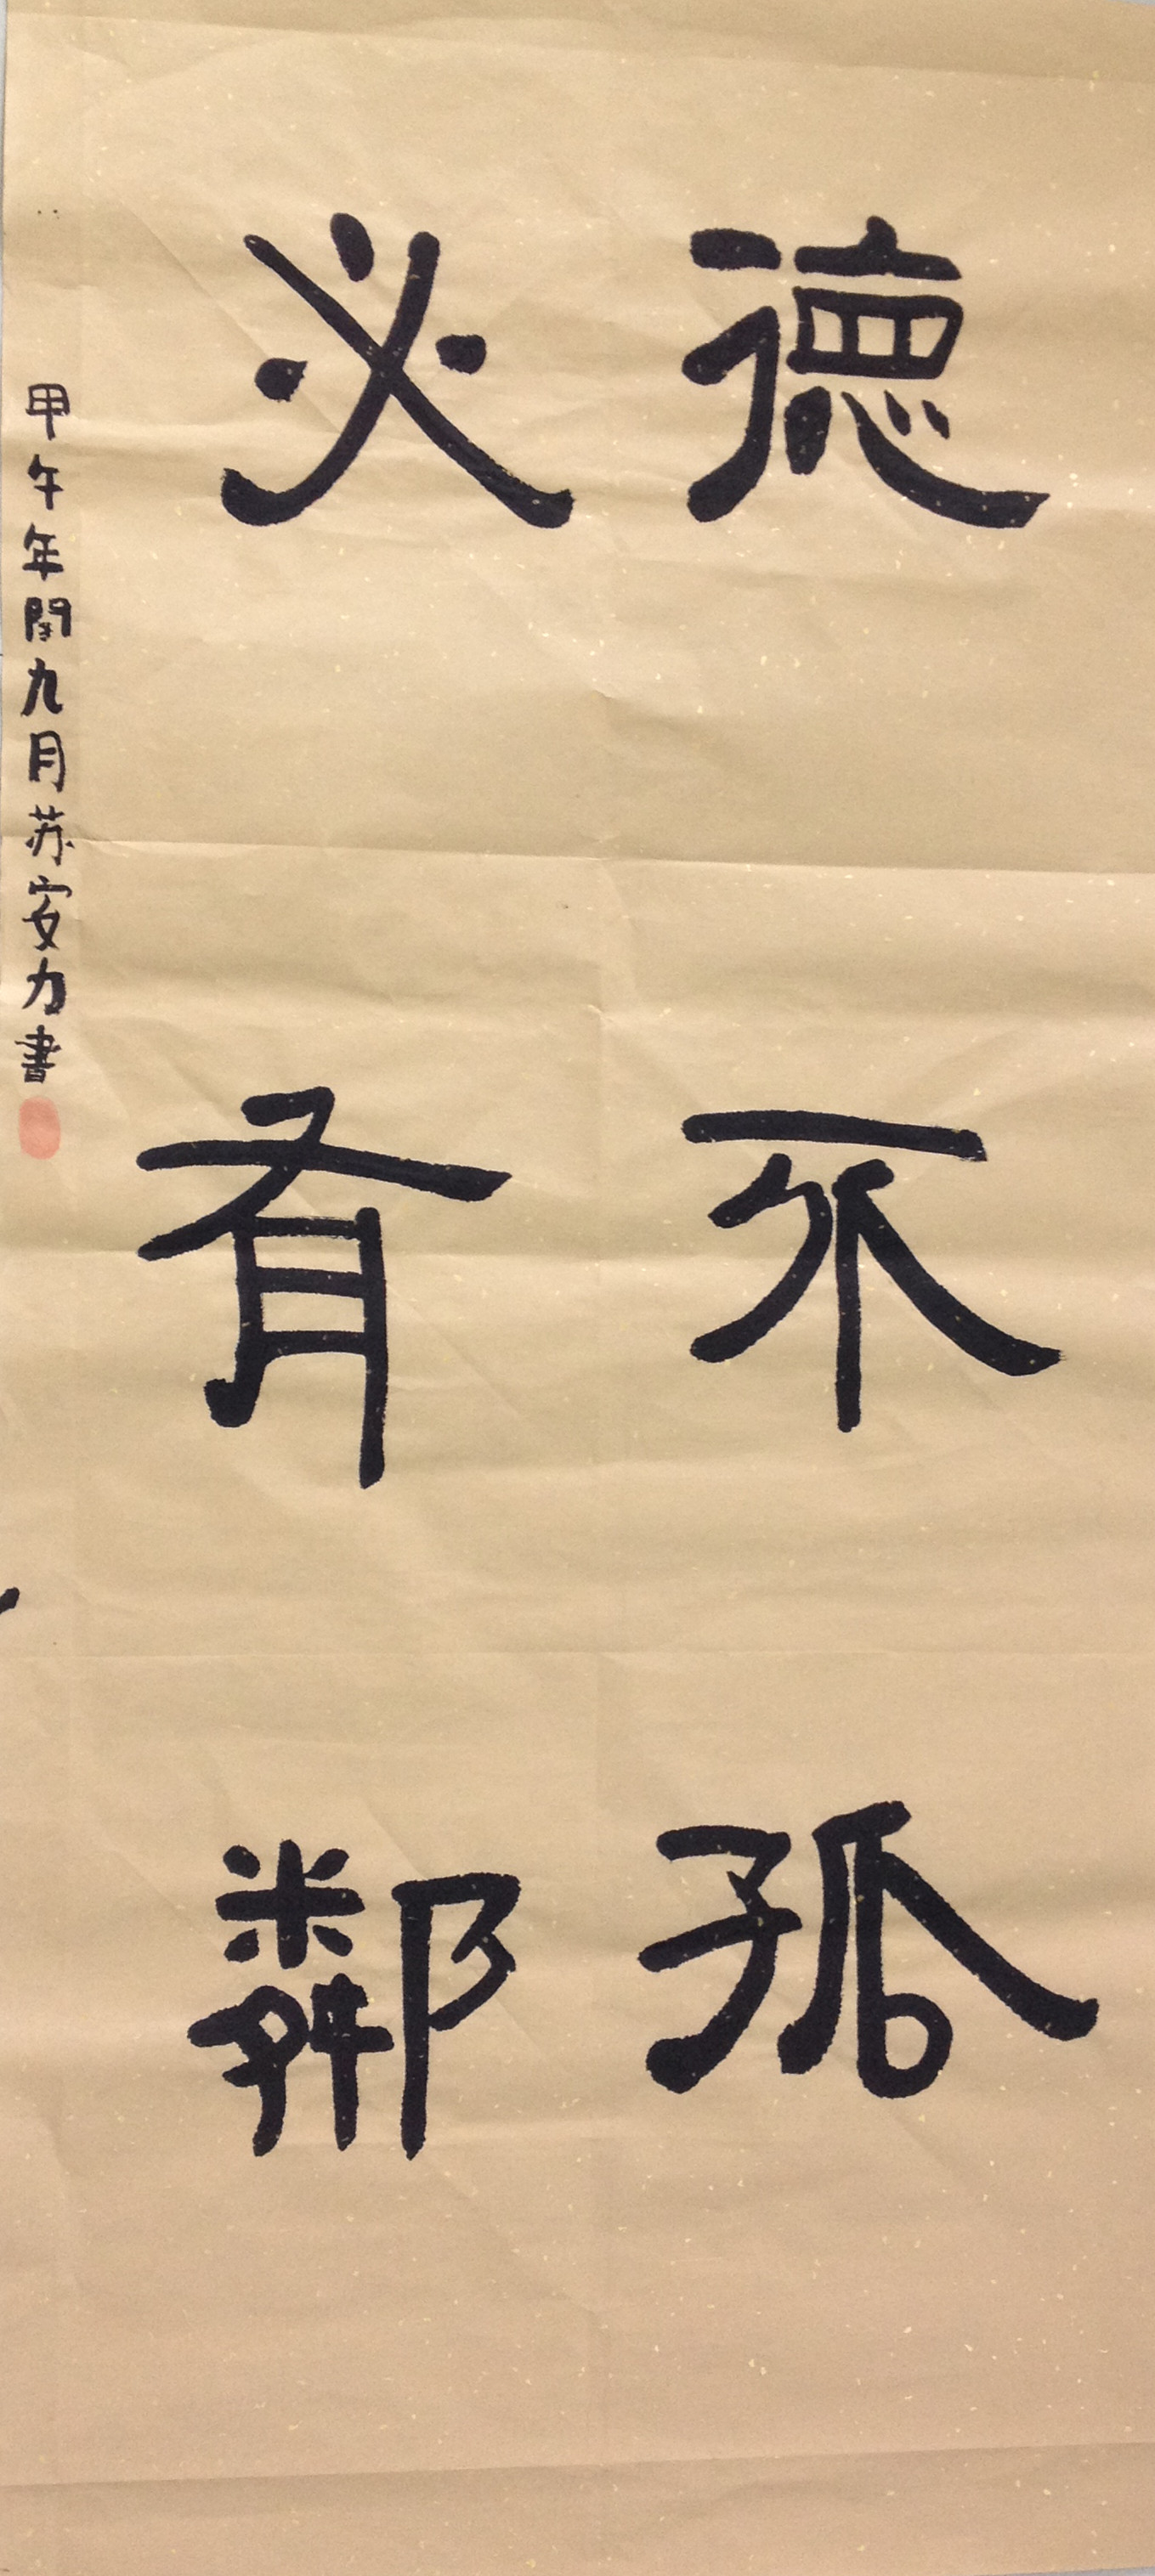 德不孤
必有鄰
甲午年閏九月苏安力書